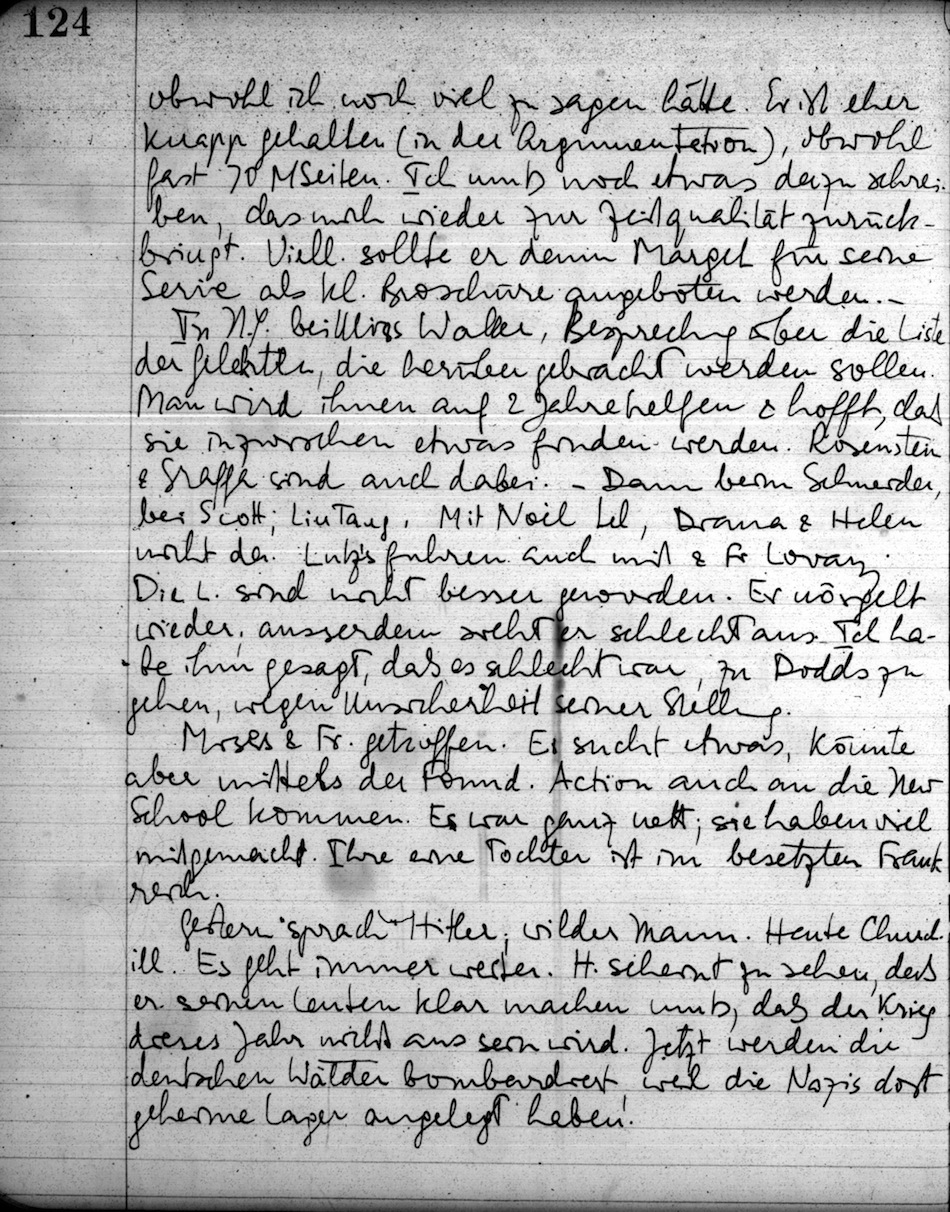 124
obwohl ich noch viel zu sagen hätte. Er ist eher
knapp gehalten (in der Argumentation), obwohl
fast 70 MSeiten. Ich muß noch etwas dazu schrei-
ben, das mich wieder zur Zeitqualität zurück-
bringt. Viell. sollte er dann Marget für seine
Serie als kl. Broschüre angeboten werden. –
In N.Y. bei Walker, Besprechung über die Liste
der Gelehrten, die herüber gebracht werden sollen.
Man wird ihnen auf 2 Jahre helfen & hofft, daß
sie inzwischen etwas finden werden. Rosenstein
& Sraffa sind auch dabei. – Dann beim Schneider,
bei Scott; LinTang. Mit Noil , Drama & Helen
nicht da. Lutz's fuhren auch mit & Fr Lovay.
Die L. sind nicht besser geworden. Er nörgelt
wieder, ausserdem sieht er schlecht aus. Ich ha-
be ihm gesagt, daß es schlecht war, zu Dodds zu
gehen, wegen Unsicherheit seiner Stellung.
Moses & Fr. getroffen. Er sucht etwas, könnte
aber mittels der Found. Action auch an die New
School kommen. Es war ganz nett; sie haben viel
mitgemacht. Ihre eine Tochter ist im besetzten Frank
reich.
Gestern sprach Hitler; wilder Mann. Heute Church
ill. Es geht immer weiter. H. scheint zu sehen, daß
er seinen Leuten klar machen muß, daß der Krieg
dieses Jahr nicht aus sein wird. Jetzt werden die
deutschen Wälder bombardiert, weil die Nazis dort
geheime Lager angelegt haben!